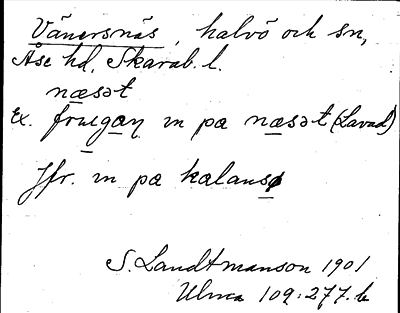 Vänersnäs, halvö och sn,
Åse hd, Skarab. l.
næsət
Ex. frugan m pa næsət (Lavad)
Jfr. m pa kalans
S. Landtmanson 1901
Ulma 109:277. b